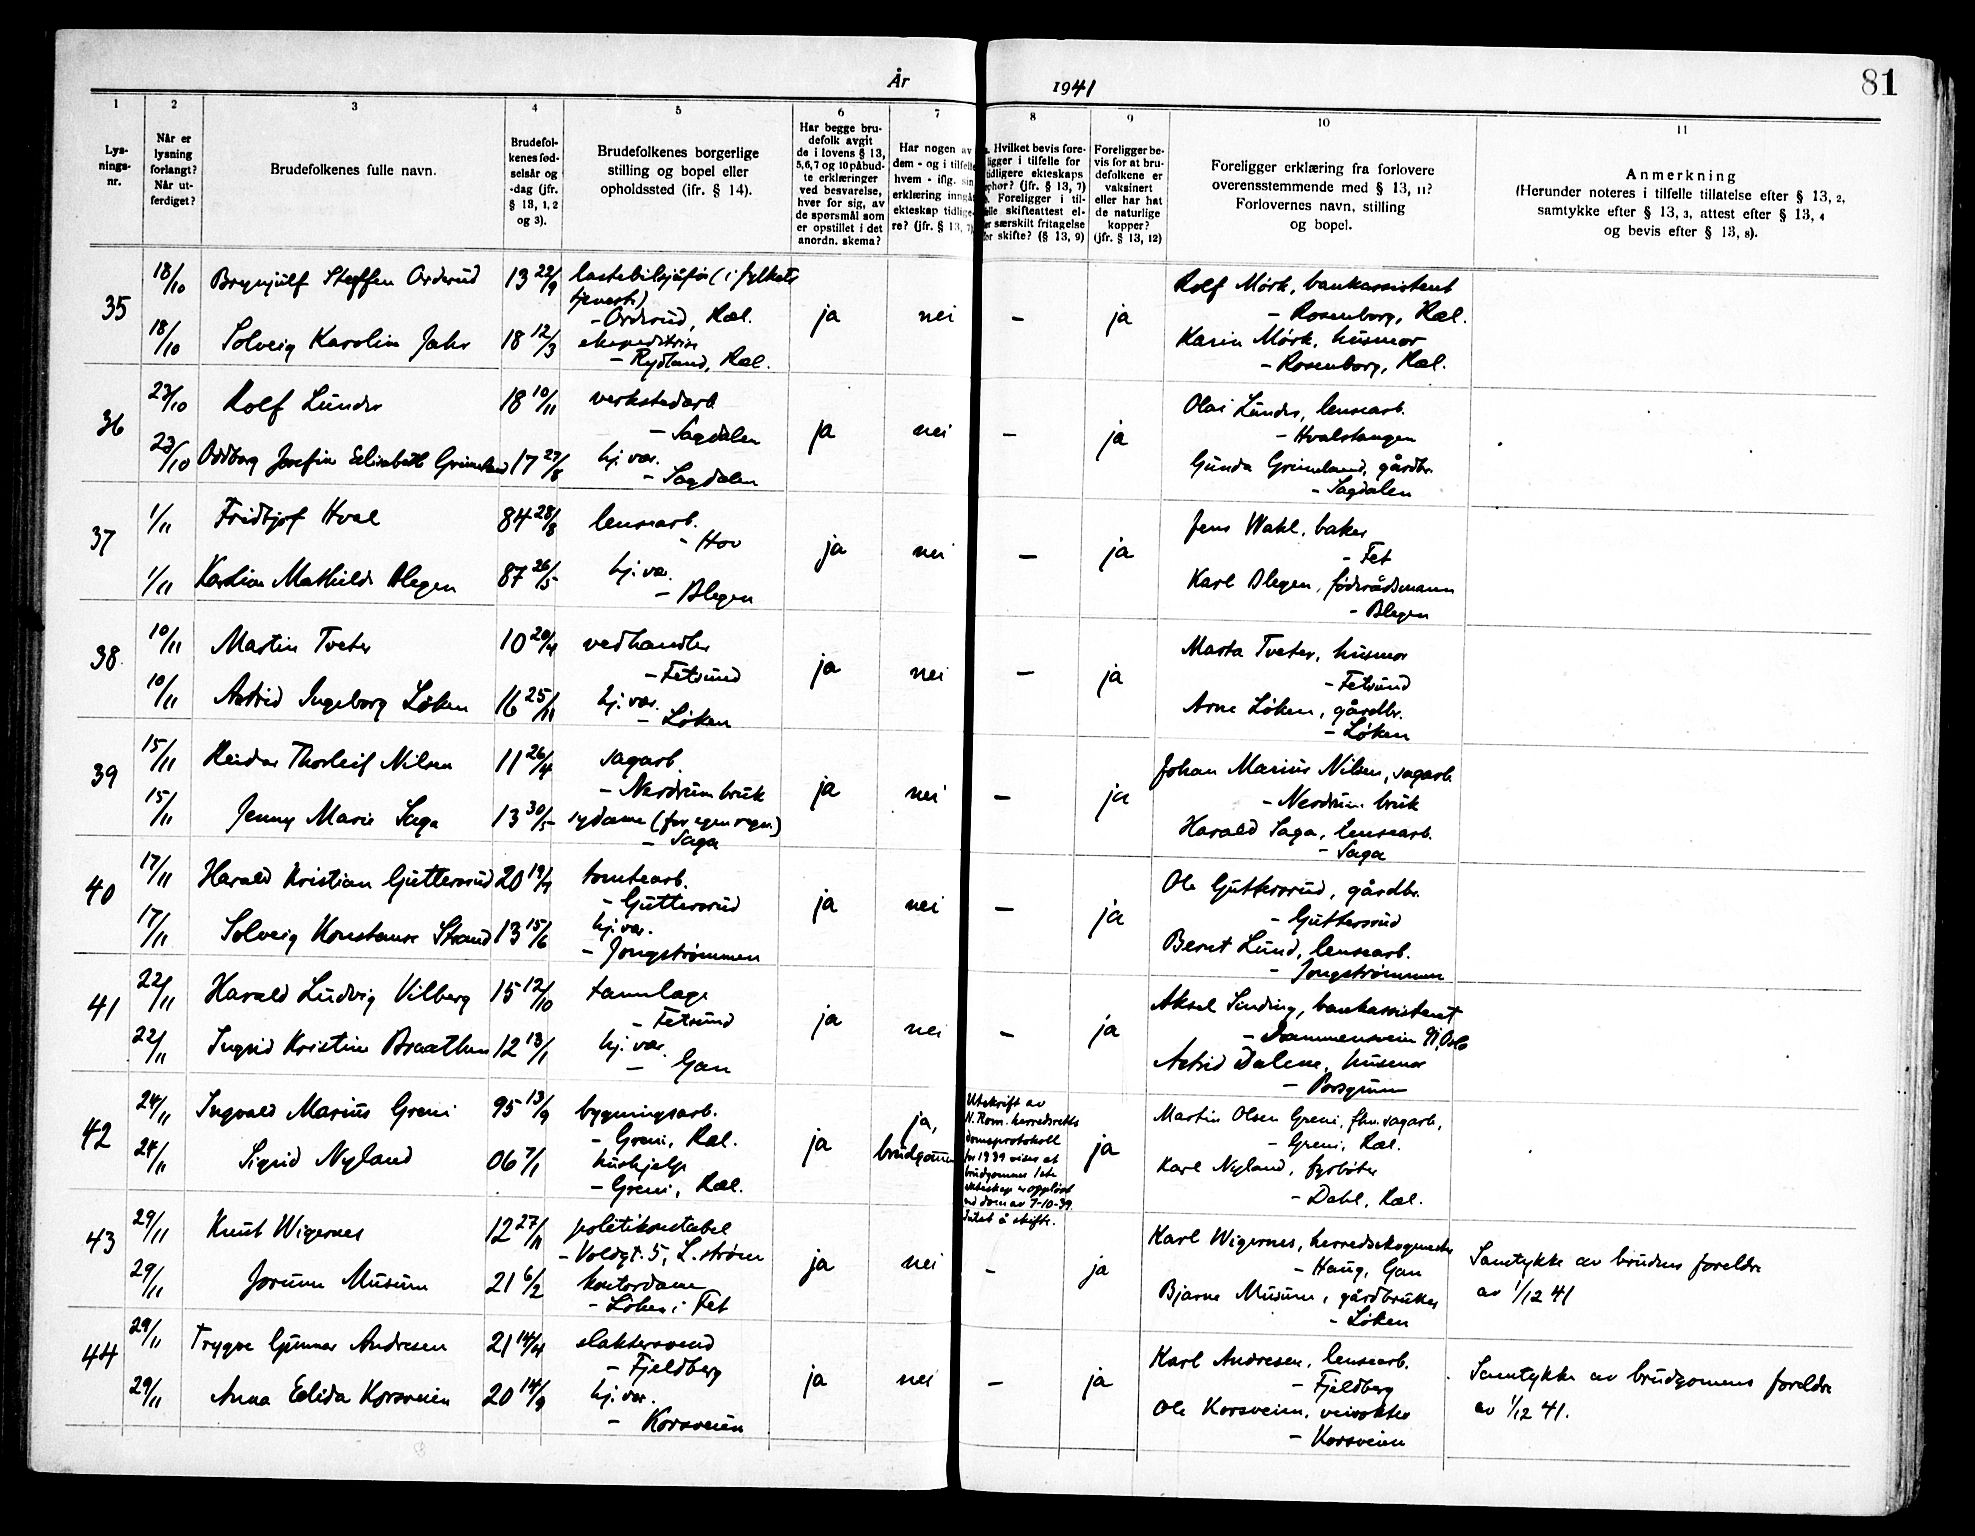 År 1941
81
1 2 3 4 5 6 7 8 9 10 11
Lys-
nings-
nr.
Når er
lysning
forlangt?
Når ut-
ferdiget?
Brudefolkenes fulle navn.
Brudefol-
kenes fød-
selsår og
-dag (jfr.
§ 13, 1, 2
og 3).
Brudefolkenes borgerlige
stilling og bopel eller
opholdssted (ifr. § 14).
Har begge bru-
defolk avgit
de i lovens § 13,
5,6,7 og 10 påbud-
te erklæringer
ved besvarelse,
hver for sig, av
de spørsmål som
er opstillet i det
anordn. skema?
Har nogen av
dem - og i tilfelle
hvem - iflg. sin
erklæring inngå
ekteskap tidlige-
re? (jfr. § 13, 7)
Hvilket bevis fore-
ligger i tilfelle for
tidligere ekteskaps
ophør? (jfr. § 13, 7)
Foreligger i til-
felle skifteattest el-
er særskilt fritagelse
for skifte? (§ 13, 9)
Foreligger be-
vis for at bru-
defolkene er
vaksinert
eller har hat
de naturlige
kopper?
(jfr. § 13, 12)
Foreligger erklæring fra forlovere
overensstemmende med § 13, 11?
Forlovernes navn, stilling
og bopel.
Anmerkning
(Herunder noteres i tilfelle tillatelse efter § 13, 2,
samtykke efter § 13, 3, attest efter § 13, 4
og bevis efter § 13, 8).
35
18/10 Brynjulf Steffen Orderud 13 22/9 lastebilsjåfør (i fylkets
tjeneste)
- Orderud, Ræl.
18/10 Solveig Karolin Jahr 18 12/3 ekspeditrise
- Rydland, Ræl.
ja nei - ja
Rolf Mørk, bankassistent
- Rosenborg, Ræl.
Karin Mørk, husmor
- Rosenborg, Ræl.
36
23/10 Rolf Lunder 18 10/11 verkstedarb
- Sagdalen
23/10 Oddborg Josefine Elisabeth Grimeland 17 27/8 hj. vær.
- Sagdalen
ja nei - ja
Olai Lunder, lensearb.
- Hvalstangen
Gunda Grimeland, gårdbr.
- Sagdalen
37
1/11 Fridtjof Hval 84 28/8 lensearb.
- Hov
1/11 Karoline Mathilde Blegen 87 26/5 hj. vær.
- Blegen
ja nei - ja
Jens Wahl, baker
- Fet
Karl Blegen, føderådsmann
- Blegen
38
10/11 Martin Tveter 10 20/4 vedhandler
- Fetsund
10/11 Astrid Ingeborg Løken 16 25/11 hj. vær.
- Løken
ja nei - ja
Marta Tveter, husmor
- Fetsund
Arne Løken, gårdbr.
- Løken
39
15/11 Reidar Thorleif Nilsen 11 26/4 sagarb.
- Nerdrum bruk
15/11 Jenny Marie Saga 13 30/5 sydame (for egen regn.)
- Saga
ja nei - ja
Johan Marius Nilsen, sagarb.
- Nerdrum bruk
Harald Saga, lensearb.
- Saga
40
17/11 Harald Kristian Guttersrud 20 19/4 tomtearb.
- Guttersrud
17/11 Solveig Konstanse Strand 13 15/6 hj. vær.
- Jongstrømmen
ja nei - ja
Ole Guttersrud, gårdbr.
- Guttersrud
Bernt Lund, lensearb.
- Jongstrømmen
41
22/11 Harald Ludvig Vilberg 15 12/10 tannlæge
- Fetsund
22/11 Ingrid Kristine Braathen 12 13/1 hj. vær.
- Gan
ja nei - ja
Aksel Sinding, bankassistent
- Drammensveien 91, Oslo
Astrid Dalene, husmor
- Porsgrunn
42
24/11 Ingvald Marius Greni 95 13/9 bygningsarb.
- Greni, Ræl.
24/11 Sigrid Nyland 06 7/1 hushjelp
- Greni, Ræl.
ja ja,
brudgommen
Utskrift av
N. Rom. herredsretts
domsprotokoll
for 1939 viser at
brudgommens 1ste
ekteskap er oppløst
ved dom av 7-10-39.
Intet å skifte.
ja
Martin Olsen Greni, fhv. sagarb,
- Greni, Ræl.
Karl Nyland, fyrbøter
- Dahl, Ræl.
43
29/11 Knut Wigernes 12 27/11 politikonstabel
- Voldgt. 5, L.strøm
29/11 Jorunn Musum 21 6/2 kontordame
- Løken i Fet
ja nei - ja
Karl Wigernes, herredsskogmester
- Haug, Gan
Bjarne Musum, gårdbruker
- Løken
Samtykke av brudens foreldre
av 1/12 41
44
29/11 Trygve Gunnar Andresen 21 14/4 slaktersvend
- Fjeldberg
29/11 Anna Edida Korsveien 20 14/9 hj. vær.
- Korsveien
ja nei - ja
Karl Andresen, lensearb.
- Fjeldberg
Ole Korsveien, veivokter
- Korsveien
Samtykke av brudgomens foreldre
av 1/12 41.